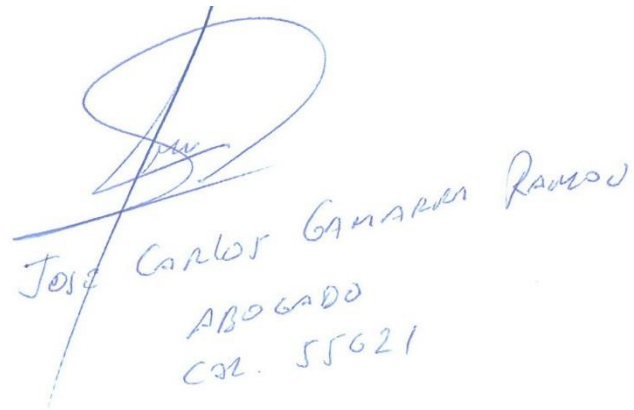 JOSE CARLOS GAMARRA RAMON
ABOGADO
CAL. 55621